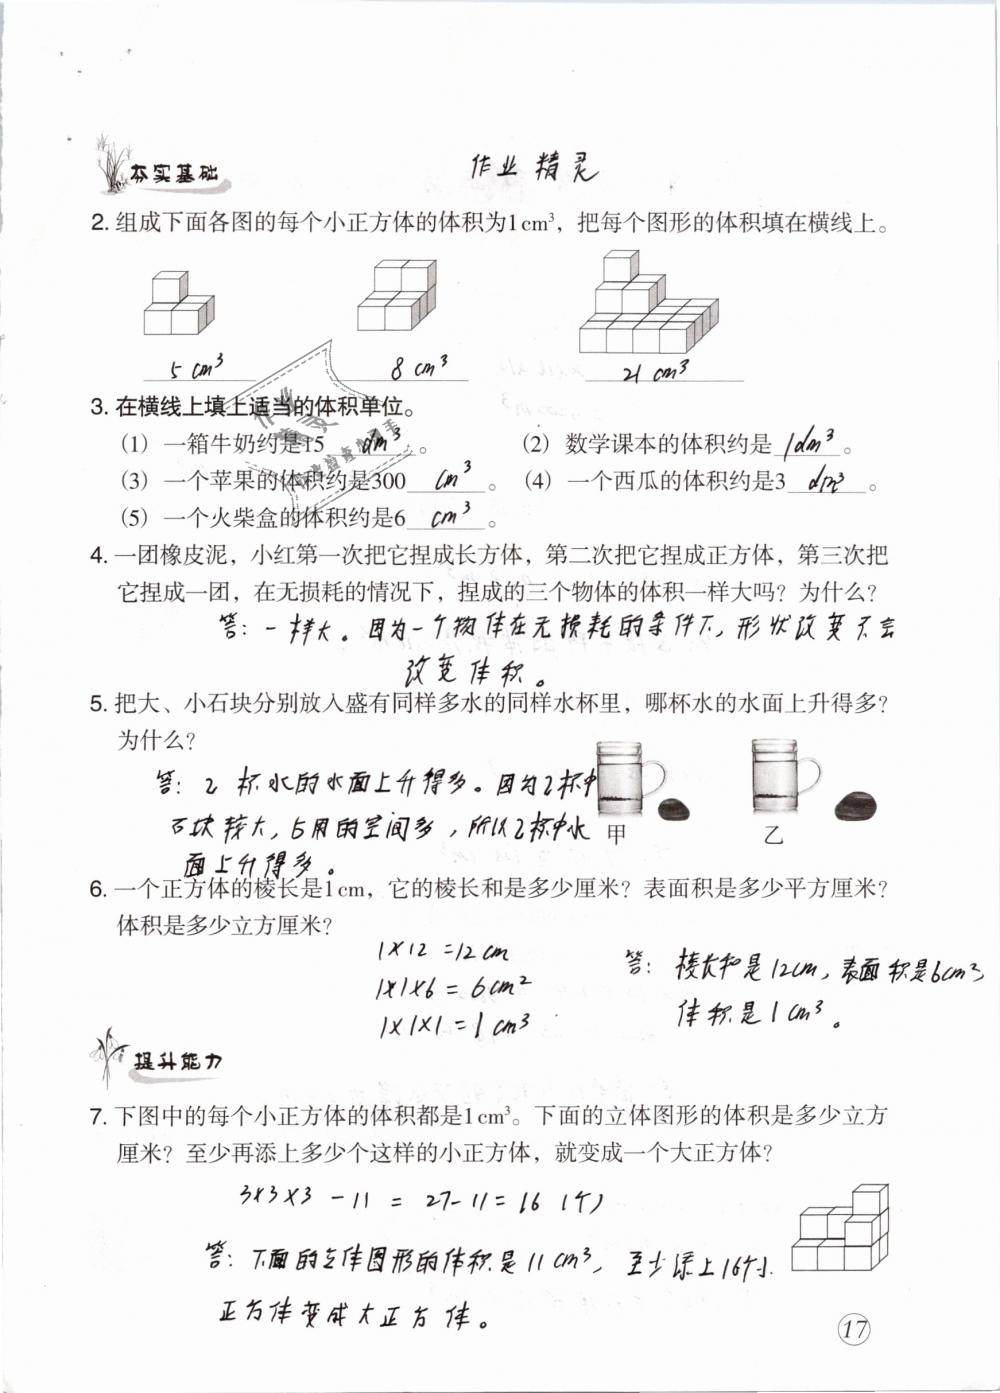 夯实基础
作业精灵
2. 组成下面各图的每个小正方体的体积为1cm³，把每个图形的体积填在横线上。
5 cm³ 8 cm³ 21 cm³
3. 在横线上填上适当的体积单位。
(1) 一箱牛奶约是15 dm³ 。 (2) 数学课本的体积约是 1dm³ 。
(3) 一个苹果的体积约是300 cm³ 。 (4) 一个西瓜的体积约是3 dm³ 。
(5) 一个火柴盒的体积约是6 cm³ 。
4. 一团橡皮泥，小红第一次把它捏成长方体，第二次把它捏成正方体，第三次把
它捏成一团，在无损耗的情况下，捏成的三个物体的体积一样大吗？为什么？
答：一样大。因为一个物体在无损耗的条件下，形状改变不会
改变体积。
5. 把大、小石块分别放入盛有同样多水的同样水杯里，哪杯水的水面上升得多？
为什么？
答：乙杯水的水面上升得多。因为乙杯中
石块较大，占用的空间多，所以乙杯中水
面上升得多。
甲 乙
6. 一个正方体的棱长是1cm，它的棱长和是多少厘米？表面积是多少平方厘米？
体积是多少立方厘米？
1×12=12cm
1×1×6=6cm²
1×1×1=1cm³
答：棱长和是12cm，表面积是6cm²，
体积是1cm³。
提升能力
7. 下图中的每个小正方体的体积都是1cm³。下面的立体图形的体积是多少立方
厘米？至少再添上多少个这样的小正方体，就变成一个大正方体？
3×3×3-11=27-11=16（个）
答：下面的立体图形的体积是11cm³，至少添上16个小
正方体变成大正方体。
17